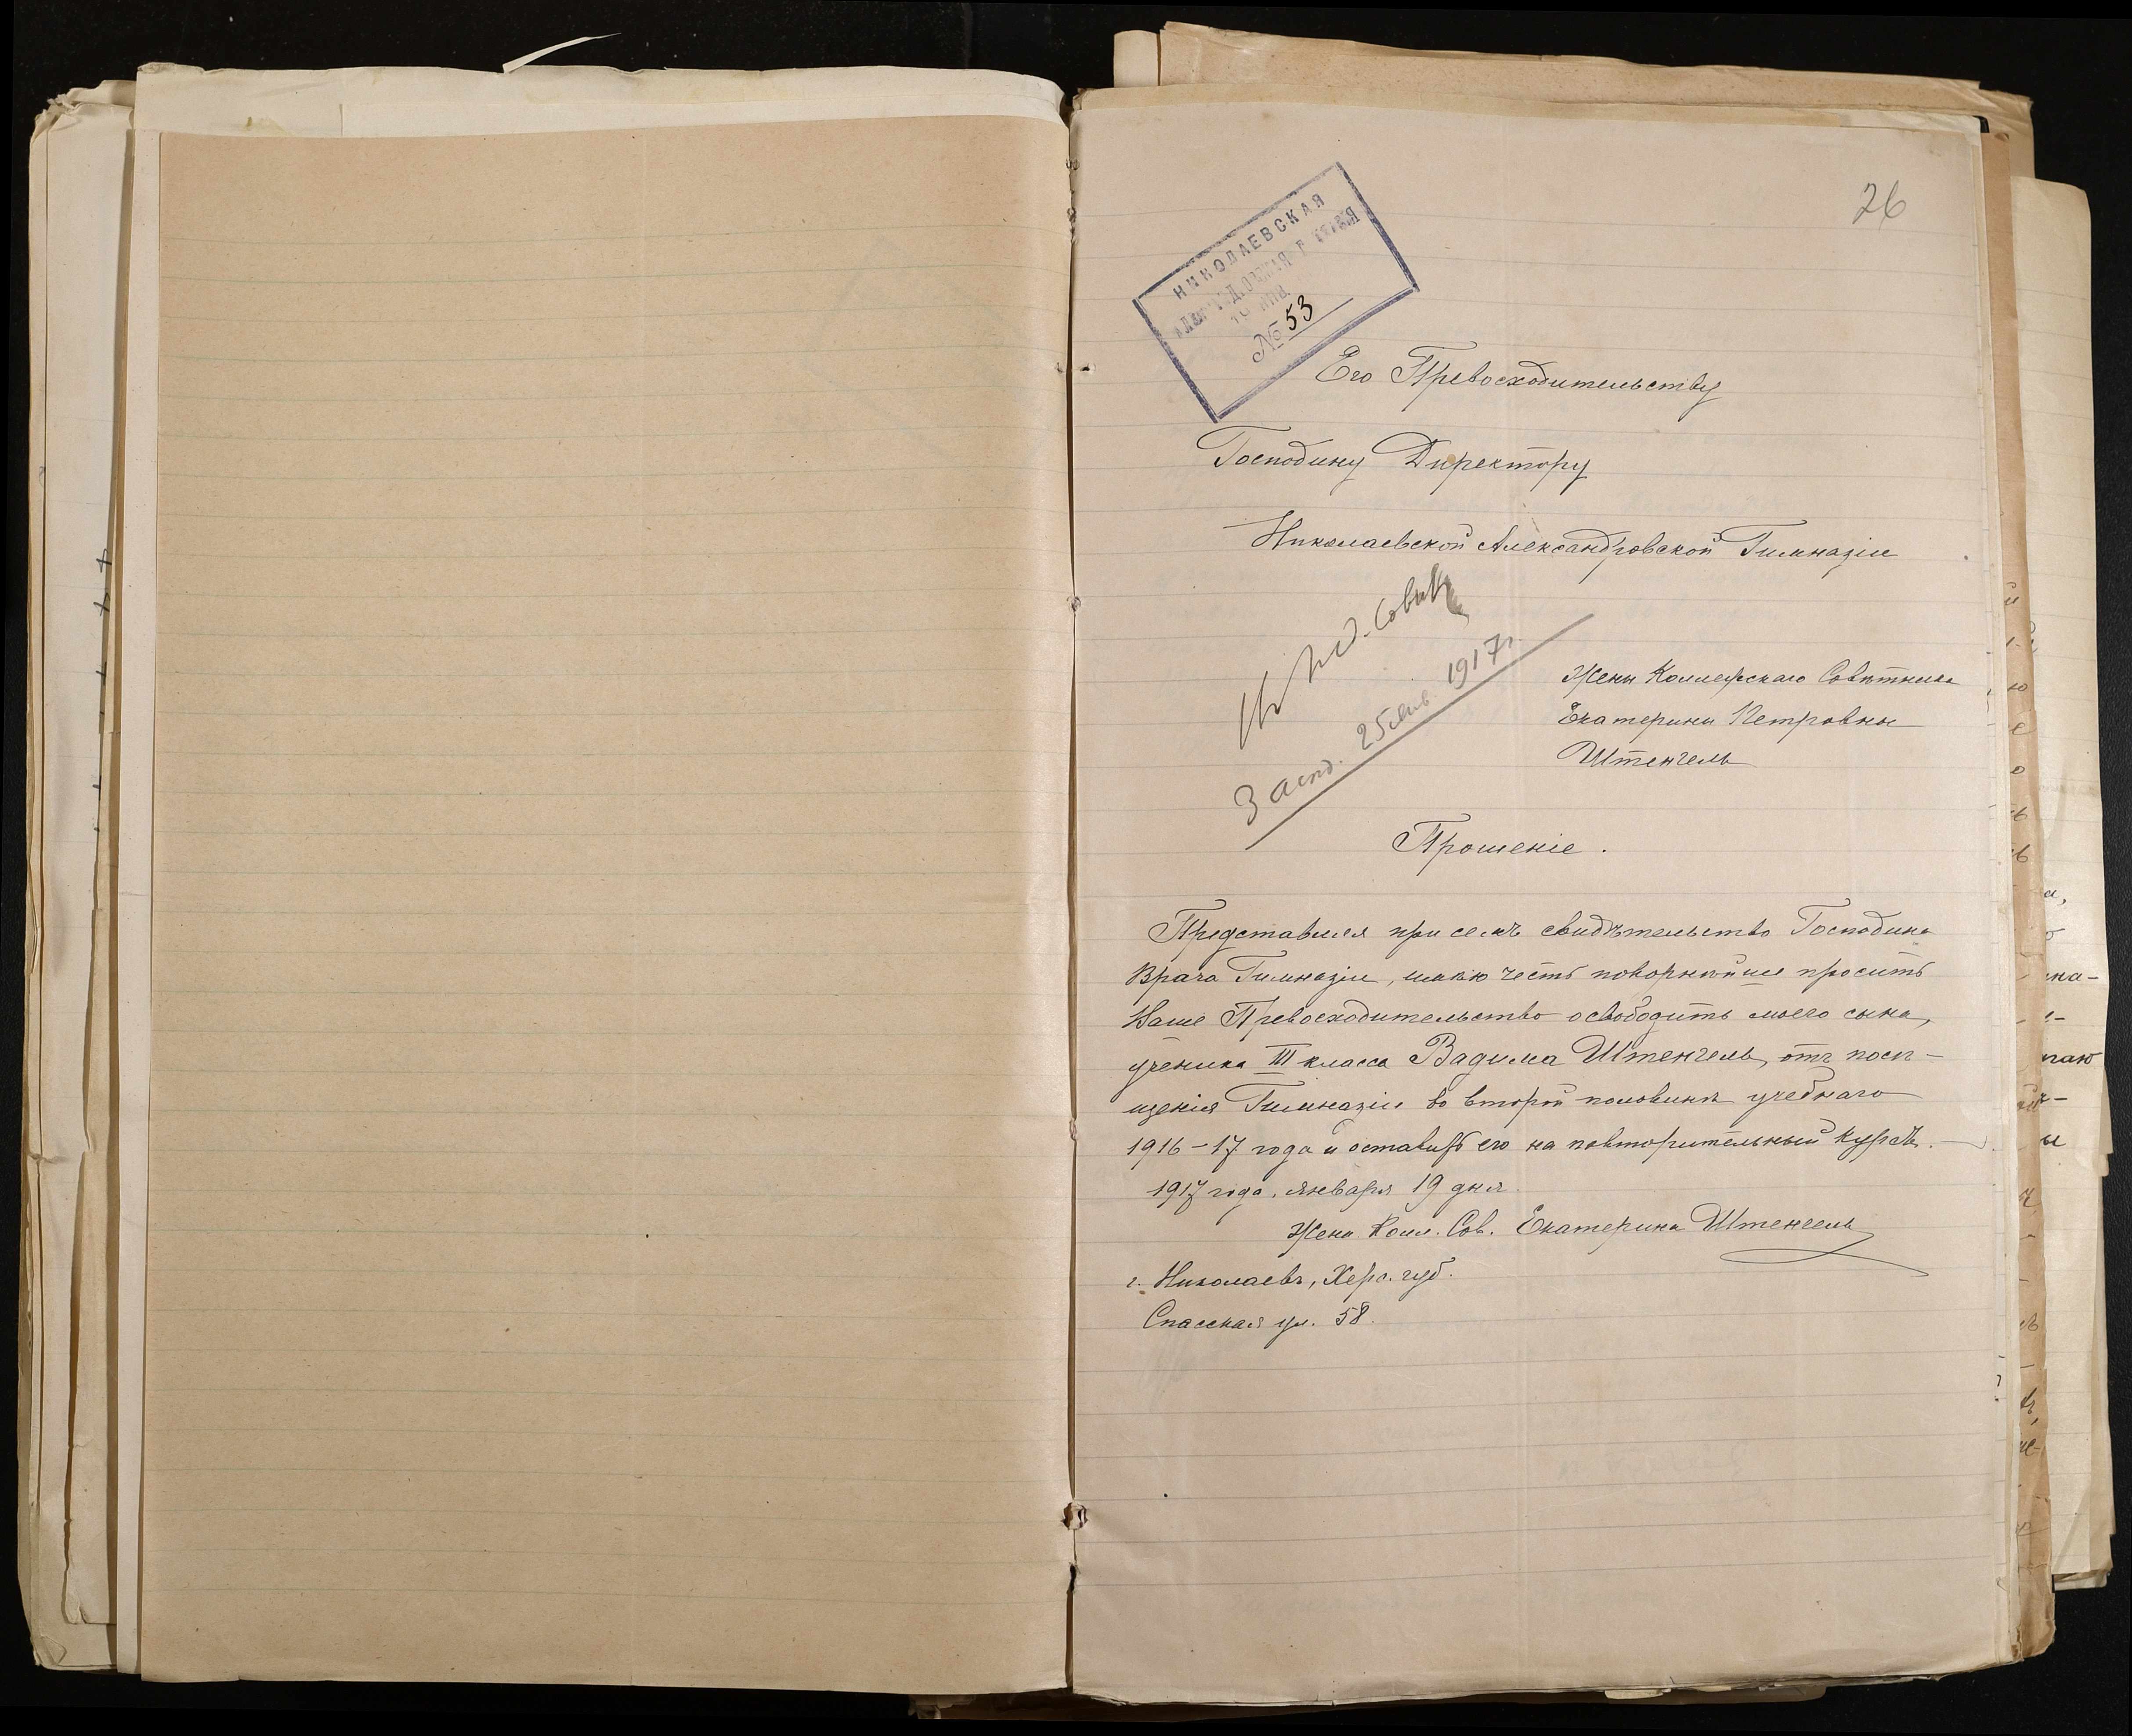 26
НИКОЛАЕВСКАЯ
№ 53
Его Превосходительству
Господину Директору
Николаевской Александровской Гимназіи
Жены Коллежскаго Совѣтника
Екатерины Петровны
Штенгель
25 янв. 1917 г.
Прошеніе.
Представляя при семъ свидѣтельство Господина
Врача Гимназіи, имѣю честь покорнѣйше просить
Ваше Превосходительство освободить моего сына,
ученика III класса Вадима Штенгель, отъ посѣ-
щенія Гимназіи во второй половинѣ учебнаго
1916-17 года и оставить его на повторительный курсъ.
1917 года, января 19 дня.
Жена Колл. Сов. Екатерина Штенгель
г. Николаевъ, Херс. губ.
Спасская ул. 58.